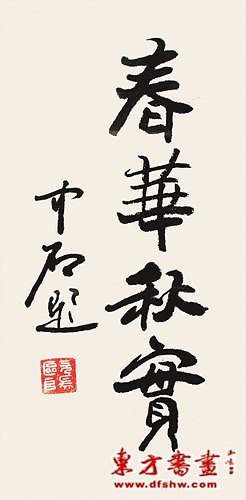 春華秋實
中石题
東方書畫
www.dfshw.com